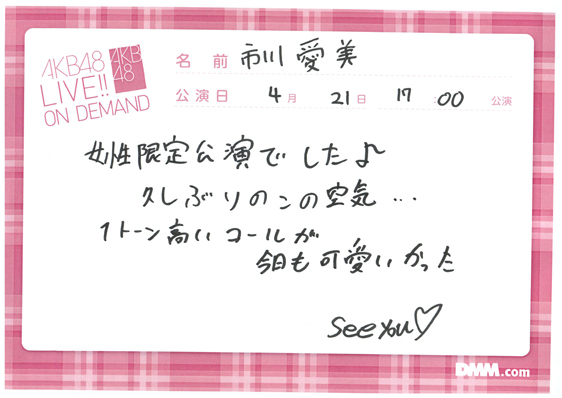 AKB48
LIVE!!
ON DEMAND
AKB
48
名 前 市川 愛美
公演日 4月 21日 17:00 公演
女性限定公演でした♪
久しぶりのこの空気…
1トーン高いコールが
今日も可愛いかった
see you♡
DMM.com